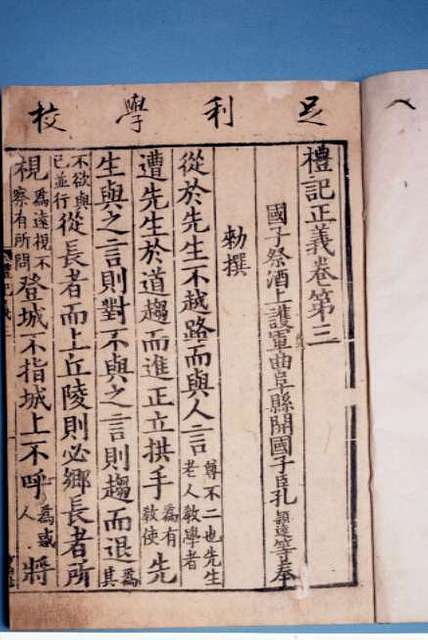 足利學校
禮記正義卷第三
國子祭酒上護軍曲阜縣開國子臣孔穎達等奉
勅撰
從於先生不越路而與人言尊不二也先生老人教學者
遭先生於道趨而進正立拱手為有教使先
生與之言則對不與之言則趨而退為其
不欲與己並行從長者而上丘陵則必鄉長者所
視為遠視不察有所問登城不指城上不呼為惑人將